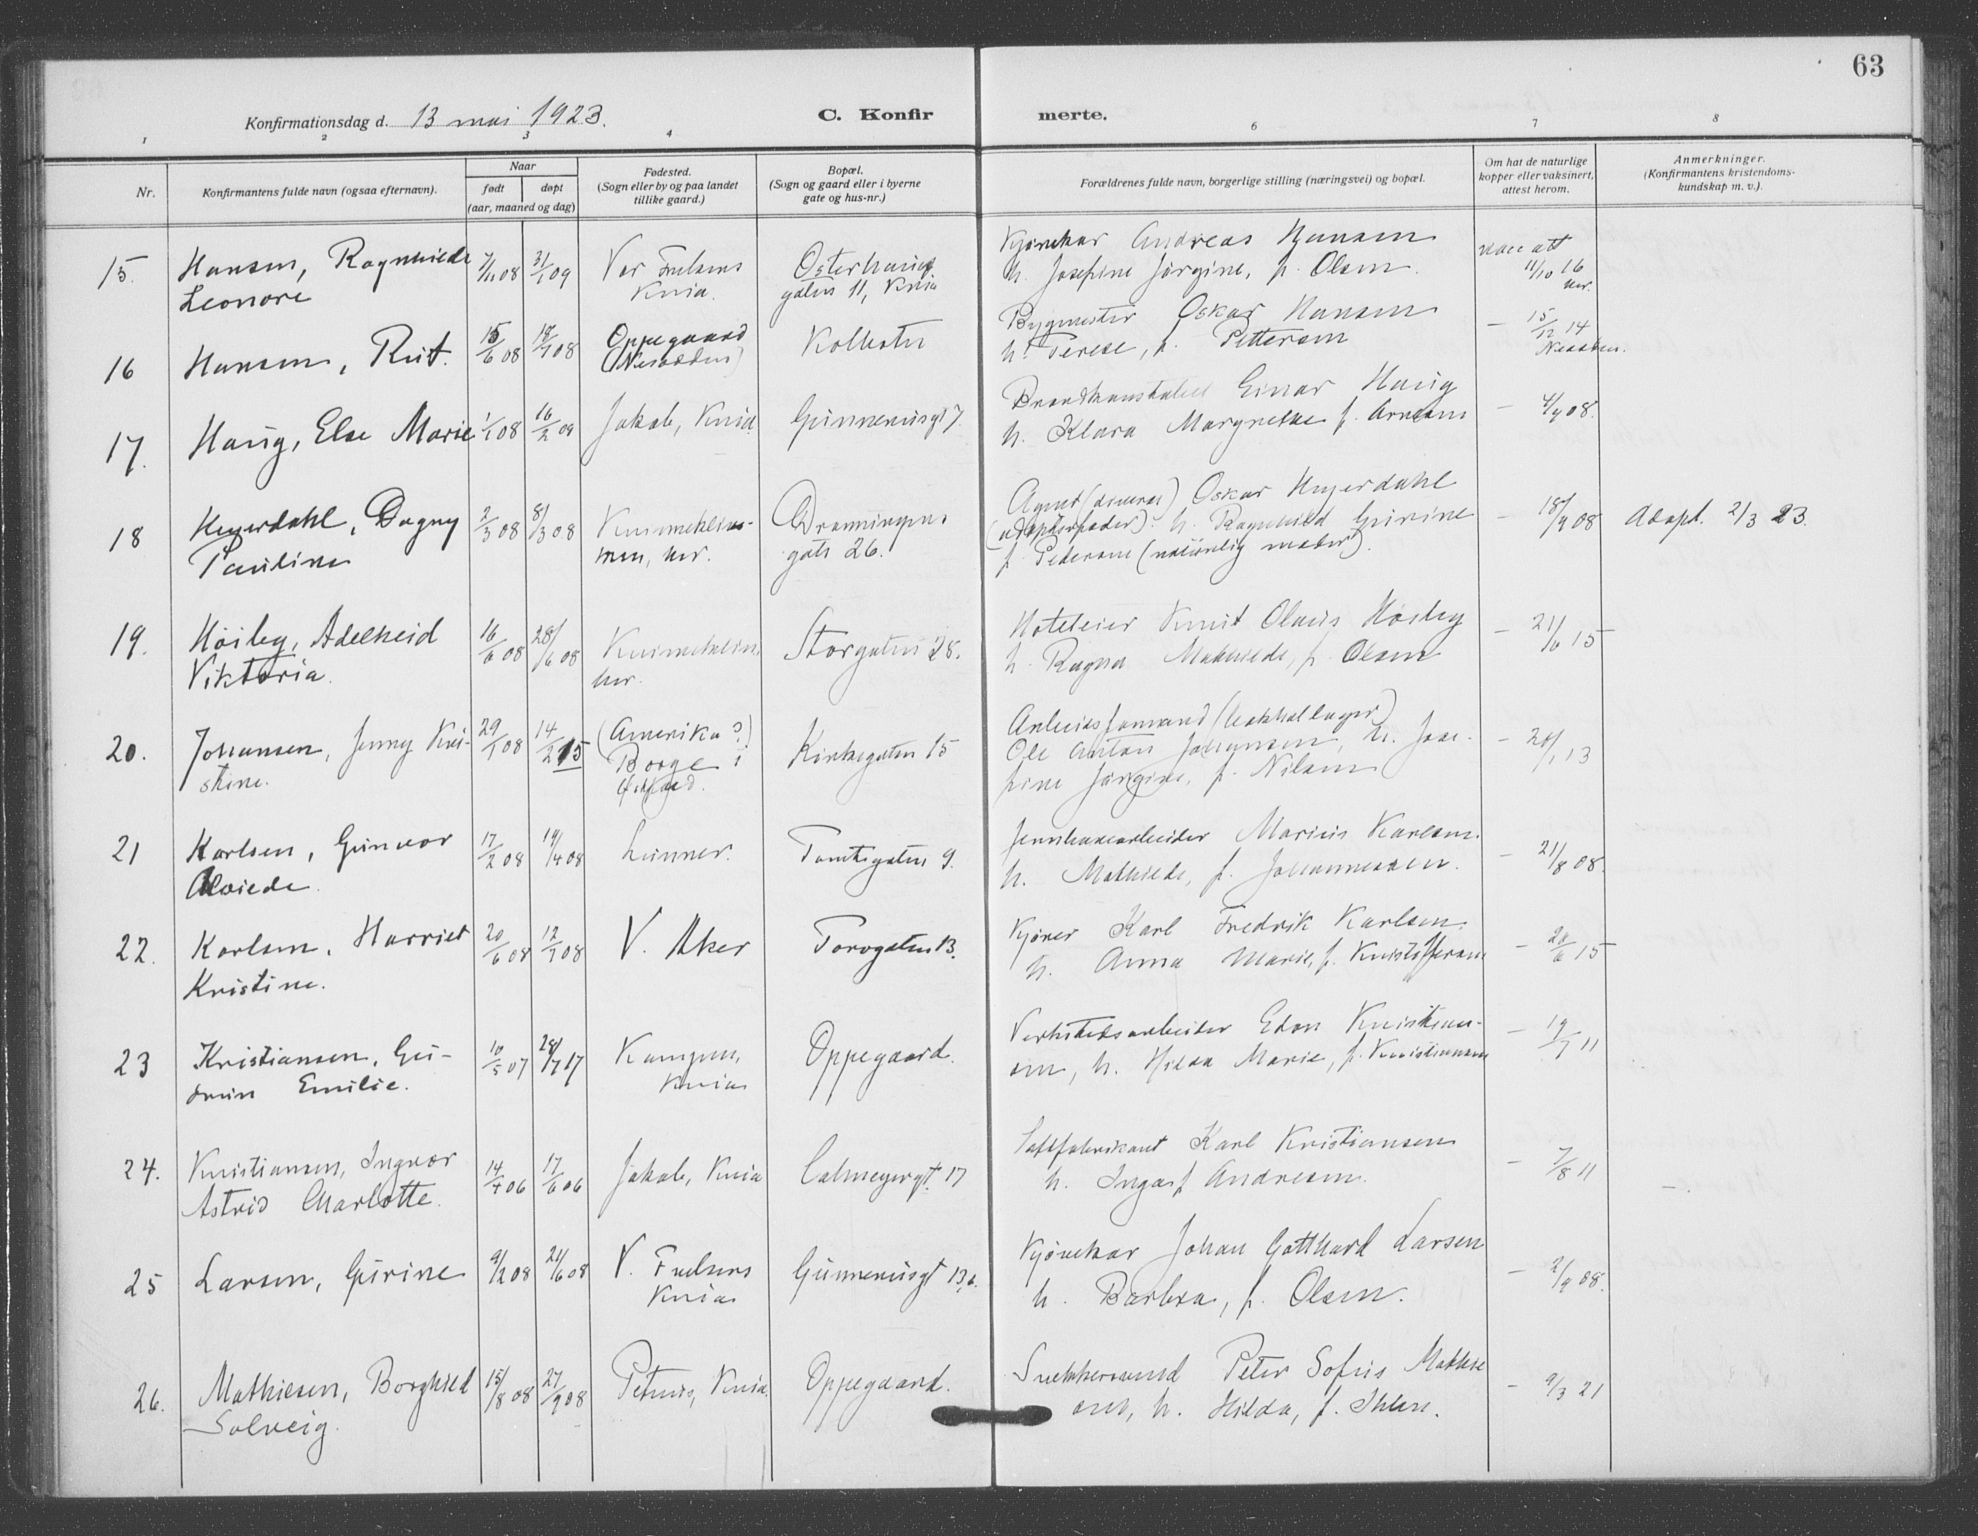 63
Konfirmationsdag d. 13 mai 1923.
C. Konfirmerte.
1 2 3 4 6 7 8
Nr.
Konfirmantens fulde navn (ogsaa efternavn).
Naar
født døpt
(aar, maaned og dag)
Fødested.
(Sogn eller by og paa landet
tillike gaard.)
Bopæl.
(Sogn og gaard eller i byerne
gate og hus-nr.)
Forældrenes fulde navn, borgerlige stilling (næringsvei) og bopæl.
Om hat de naturlige
kopper eller vaksinert,
attest herom.
Anmerkninger.
(Konfirmantens kristendoms-
kundskap m. v.).
15. Hansen, Ragnhild 7/11 08 31/1 09 Vor Frelsers Osterhaus Andreas Hansen
Leonore Kria. gaten 11, Kria h. Josefine Jørgine, f. Olsen. 11/10 16
16 Hansen, Rut. 15/6 08 Oppegaard Kolbotn Bygmester Oskar Hansen – 15/12 14
(Nesodden) h. Terese, f. Pettersen Nesodden.
17. Haug, Else Marie 1/1 08 16/2 09 Jakob, Kria. Gunnerusgt 7. Einar Haug – 4/9 08.
h. Klara Margrethe f. Arnesen
18 Heyerdahl, Dagny 2/3 08 8/3 08 Dronningens Agent Oskar Heyerdahl – 18/9 08 Adopt. 2/3 23.
Pauline gate 26. (adoptivfader). h. Ragnhild Gurine
f. Pedersen (naturlig moder).
19. Høiby, Adelheid 16/6 08 28/6 08 Storgaten 28. Hoteleier Knut Olaus Høiby – 21/6 15
Viktoria. h. Ragna Mathilde, f. Olsen
20. Johansen, Jenny Kri- 29/1 08 14/2 15 (Amerika?) Kirkegaten 15 Arbeidsformand
stine. Borge i Ole Anton Johansen, h. Jose- – 13
fine Jørgine, f. Nilsen
21 Karlsen, Gunvor 17/2 08 19/4 08 Lunner. Tomtegaten 9. Marius Karlsen. – 21/8 08.
Alvilde. h. Mathilde, f. Johannessen.
22. Karlsen, Harriet 20/6 08 12/7 08 V. Aker Torvgaten 13. Kjører Karl Fredrik Karlsen. – 20/6 15
Kristine. h. Anna Marie, f. Kristoffersen
23 Kristiansen, Gu- 10/5 07 28/7 17 Kampen, Oppegaard. Verkstedsarbeider Edon Kristian- – 19/7 11
drun Emilie. Kria sen, h. Hilda Marie, f. Kristiansen
24. Kristiansen, Ingvor 14/4 06 17/6 06 Jakob, Kria Calmeyergt. 17 Saftfabrikant Karl Kristiansen – 7/8 11
Astrid Charlotte. h. Inga f. Andresen.
25 Larsen, Gurine 9/2 08 21/6 08 V. Frelsers Gunnerusgt 13 Johan Gotthard Larsen – 2/9 08.
Kria h. Barbra, f. Olsen.
26. Mathiesen, Borghild 15/8 08 27/9 08 Petrus, Kria. Oppegaard. Snekkersvend Peter Sofus Mathie- – 9/3 21
Solveig. sen, h. Hilda, f. Ihlen.